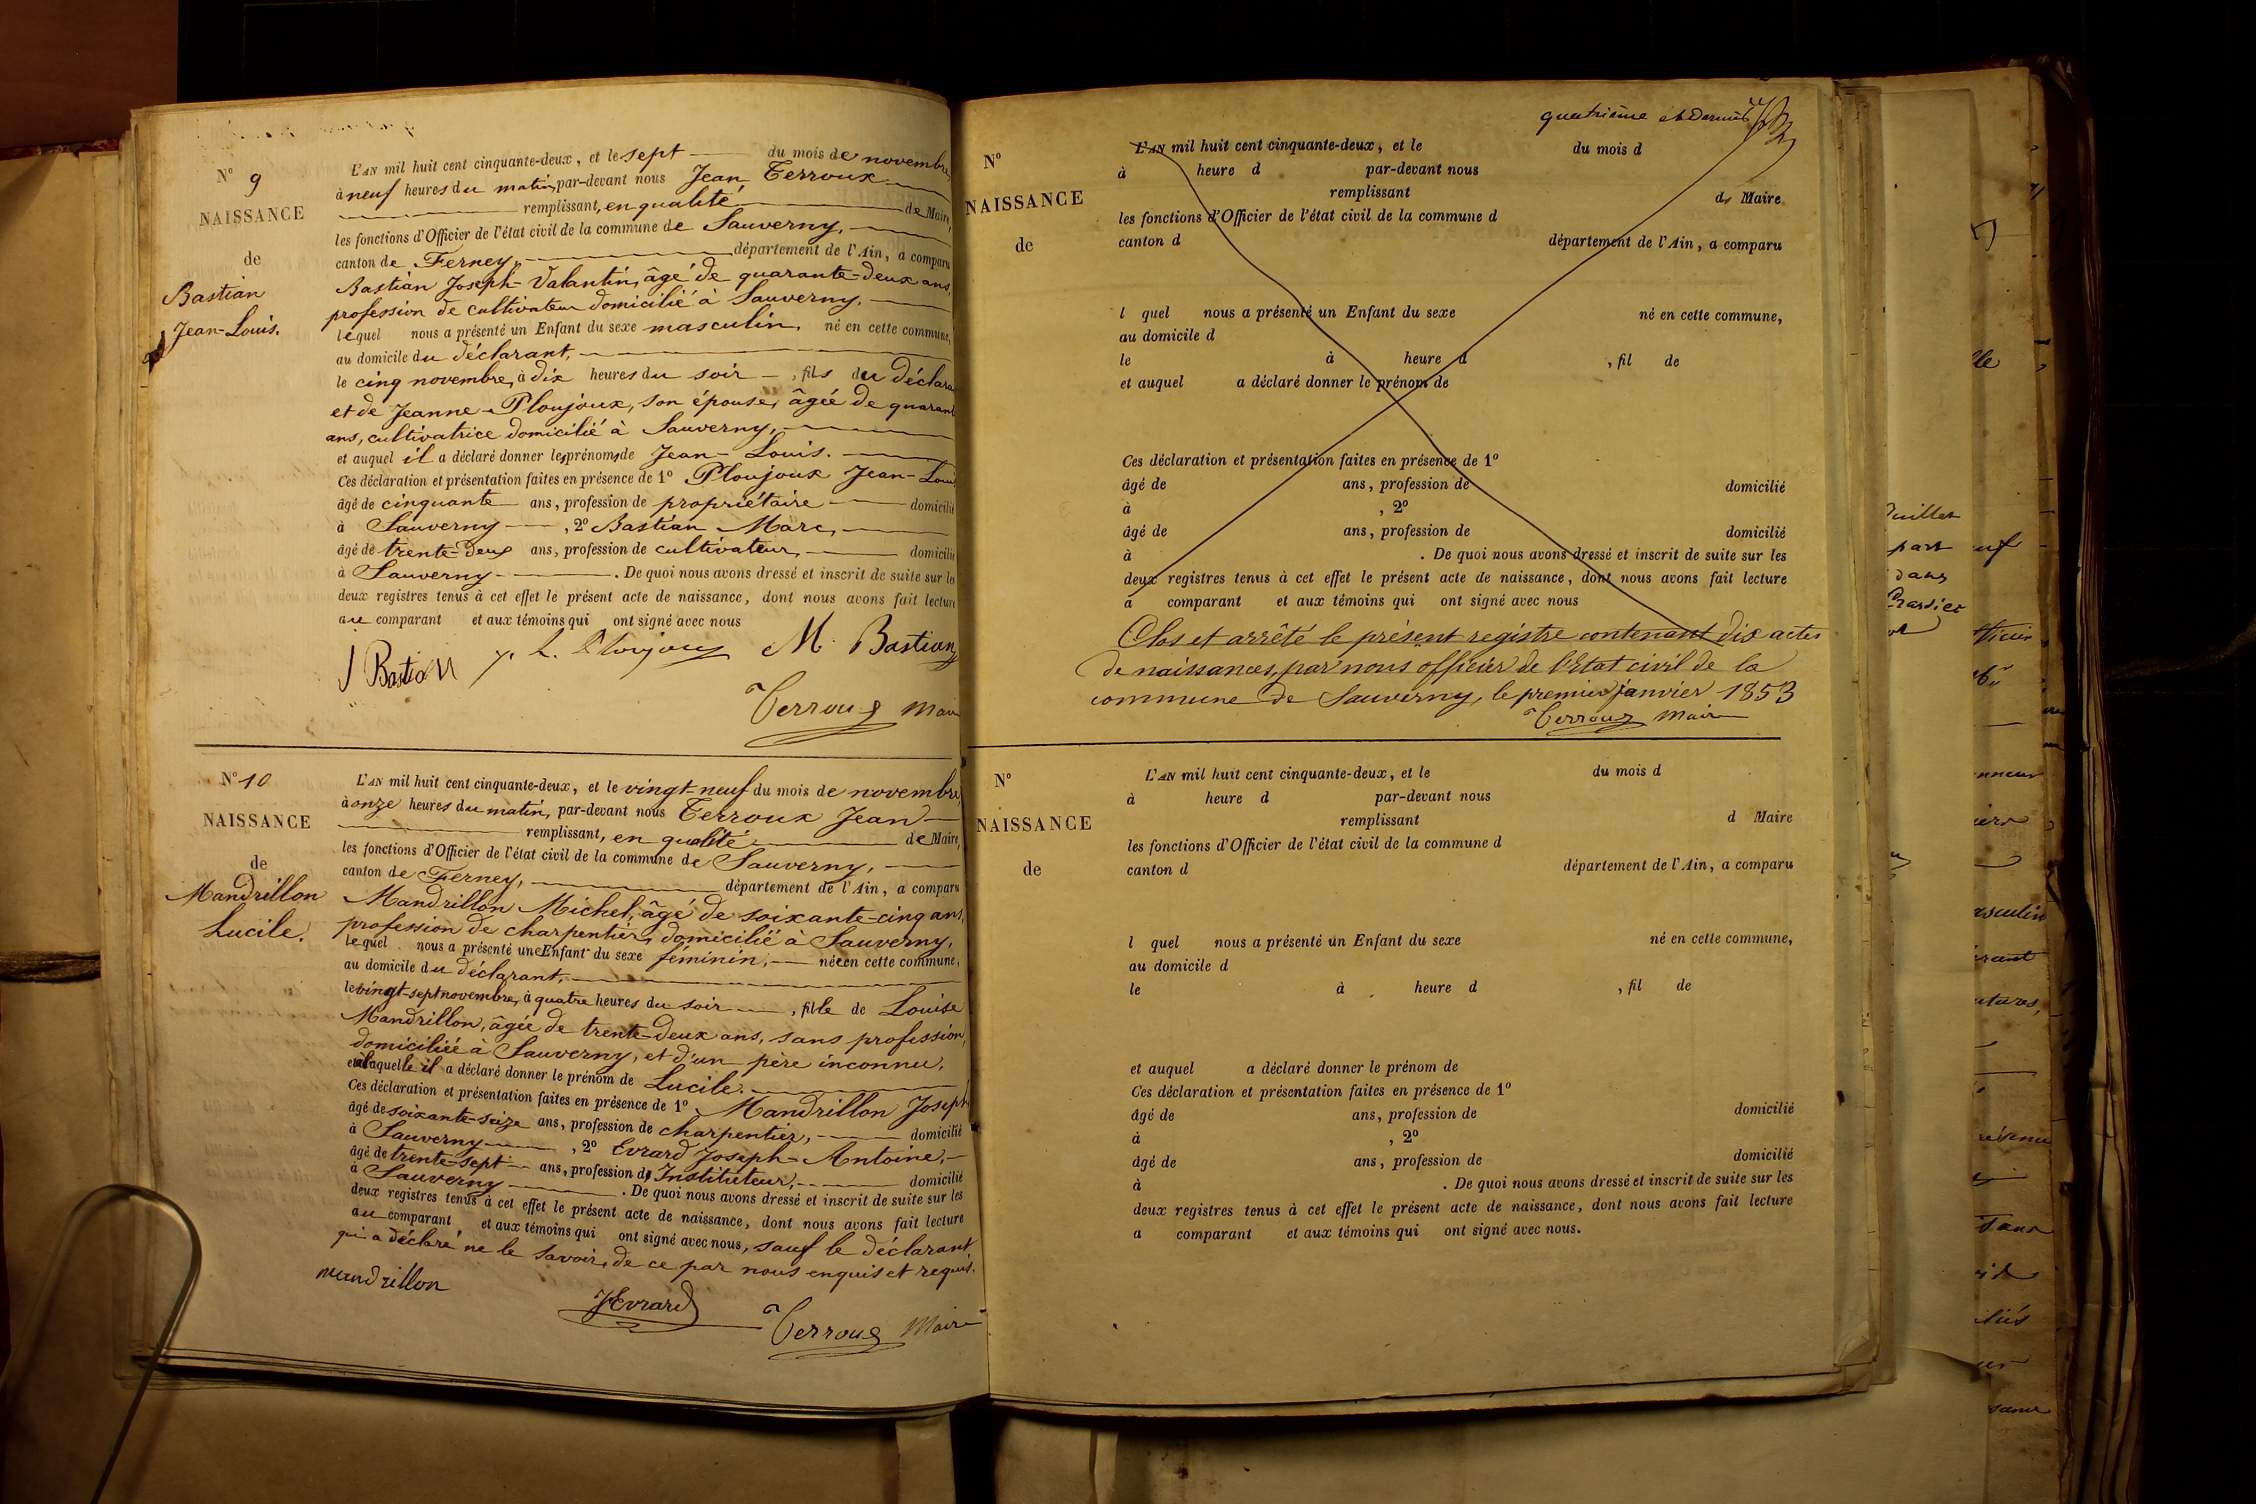 N° 9
NAISSANCE
de
Bastian
Jean-Louis.
L'AN mil huit cent cinquante-deux, et le sept du mois de novembre,
à neuf heures du matin, par-devant nous Jean Terroux
remplissant, en qualité de Maire,
les fonctions d'Officier de l'état civil de la commune de Sauverny,
canton de Ferney, département de l'Ain, a comparu
Bastian Joseph-Valantin, âgé de quarante-deux ans,
profession de cultivateur domicilié à Sauverny,
lequel nous a présenté un Enfant du sexe masculin, né en cette commune,
au domicile du déclarant,
le cinq novembre, à dix heures du soir, fils du déclara
et de Jeanne Ploujoux, son épouse, âgée de quarant
ans, cultivatrice domicilié à Sauverny,
et auquel il a déclaré donner les prénoms de Jean-Louis.
Ces déclaration et présentation faites en présence de 1° Ploujoux Jean-Loui
âgé de cinquante ans, profession de propriétaire domicilié
à Sauverny, 2° Bastian Marc,
âgé de trente-deux ans, profession de cultivateur, domicilié
à Sauverny. De quoi nous avons dressé et inscrit de suite sur les
deux registres tenus à cet effet le présent acte de naissance, dont nous avons fait lecture
au comparant et aux témoins qui ont signé avec nous
J Bastian J. L. Ploujoux M. Bastian
Terroux Maire
N° 10
NAISSANCE
de
Mandrillon
Lucile.
L'AN mil huit cent cinquante-deux, et le vingt-neuf du mois de novembre,
à onze heures du matin, par-devant nous Terroux Jean
remplissant, en qualité de Maire,
les fonctions d'Officier de l'état civil de la commune de Sauverny,
canton de Ferney, département de l'Ain, a comparu
Mandrillon Michel, âgé de soixante-cinq ans,
profession de charpentier, domicilié à Sauverny,
lequel nous a présenté une Enfant du sexe féminin, née en cette commune,
au domicile du déclarant,
le vingt-sept novembre, à quatre heures du soir, fille de Louise
Mandrillon, âgée de trente-deux ans, sans profession,
domiciliée à Sauverny, et d'un père inconnu,
et à laquelle il a déclaré donner le prénom de Lucile.
Ces déclaration et présentation faites en présence de 1° Mandrillon Joseph
âgé de soixante-seize ans, profession de charpentier, domicilié
à Sauverny, 2° Evrard Joseph-Antoine,
âgé de trente-sept ans, profession d'Instituteur, domicilié
à Sauverny. De quoi nous avons dressé et inscrit de suite sur les
deux registres tenus à cet effet le présent acte de naissance, dont nous avons fait lecture
au comparant et aux témoins qui ont signé avec nous, sauf le déclarant
qui a déclaré ne le savoir, de ce par nous enquis et requis.
Mandrillon
JEvrard
Terroux Maire
quatrième et dernier
N°
NAISSANCE
de
L'AN mil huit cent cinquante-deux, et le du mois d
à heure d par-devant nous
remplissant d Maire
les fonctions d'Officier de l'état civil de la commune d
canton d département de l'Ain, a comparu
l quel nous a présenté un Enfant du sexe né en cette commune,
au domicile d
le à heure d , fil de
et auquel a déclaré donner le prénom de
Ces déclaration et présentation faites en présence de 1°
âgé de ans, profession de domicilié
à , 2°
âgé de ans, profession de domicilié
à . De quoi nous avons dressé et inscrit de suite sur les
deux registres tenus à cet effet le présent acte de naissance, dont nous avons fait lecture
a comparant et aux témoins qui ont signé avec nous
Clos et arrêté le présent registre contenant dix actes
de naissances, par nous officier de l'Etat civil de la
commune de Sauverny, le premier janvier 1853
Terroux Maire
N°
NAISSANCE
de
L'AN mil huit cent cinquante-deux, et le du mois d
à heure d par-devant nous
remplissant d Maire
les fonctions d'Officier de l'état civil de la commune d
canton d département de l'Ain, a comparu
l quel nous a présenté un Enfant du sexe né en cette commune,
au domicile d
le à heure d , fil de
et auquel a déclaré donner le prénom de
Ces déclaration et présentation faites en présence de 1°
âgé de ans, profession de domicilié
à , 2°
âgé de ans, profession de domicilié
à . De quoi nous avons dressé et inscrit de suite sur les
deux registres tenus à cet effet le présent acte de naissance, dont nous avons fait lecture
a comparant et aux témoins qui ont signé avec nous.